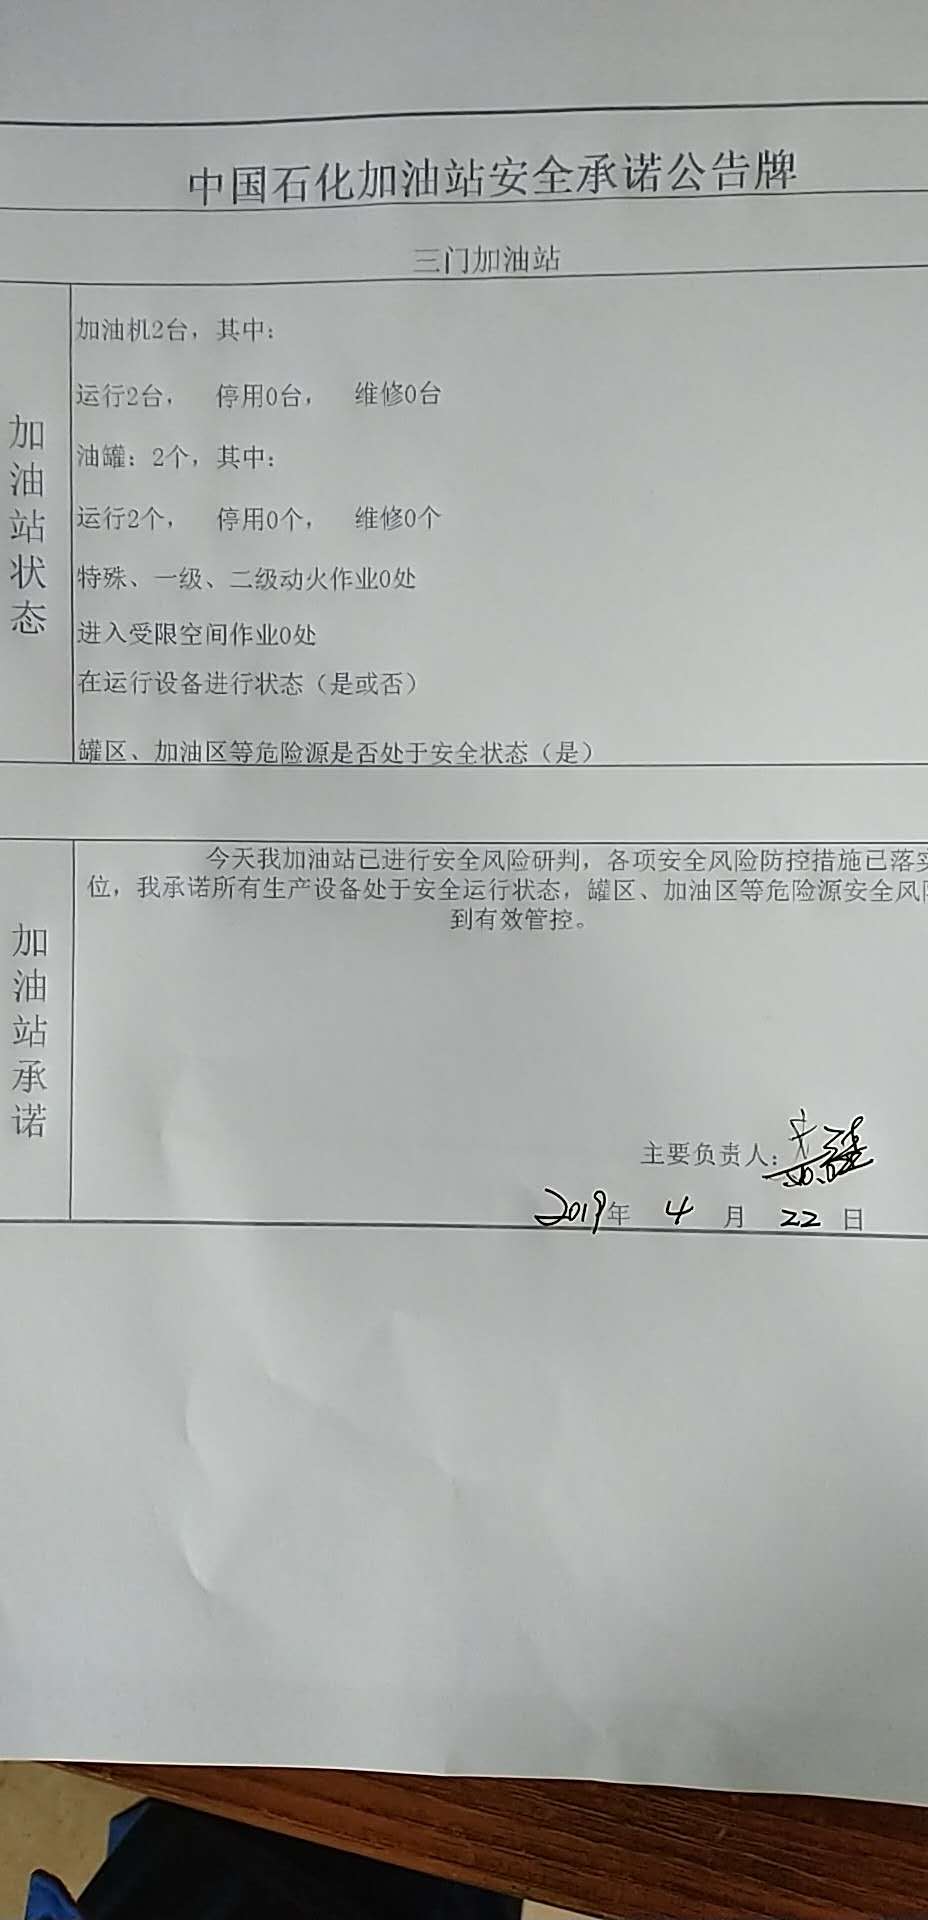 中国石化加油站安全承诺公告牌
三门加油站
加油站状态
加油机2台，其中：
运行2台，　停用0台，　维修0台
油罐：2个，其中：
运行2个，　停用0个，　维修0个
特殊、一级、二级动火作业0处
进入受限空间作业0处
在运行设备进行状态（是或否）
罐区、加油区等危险源是否处于安全状态（是）
加油站承诺
今天我加油站已进行安全风险研判，各项安全风险防控措施已落实
位，我承诺所有生产设备处于安全运行状态，罐区、加油区等危险源安全风
到有效管控。
主要负责人：
2019年 4 月 22 日